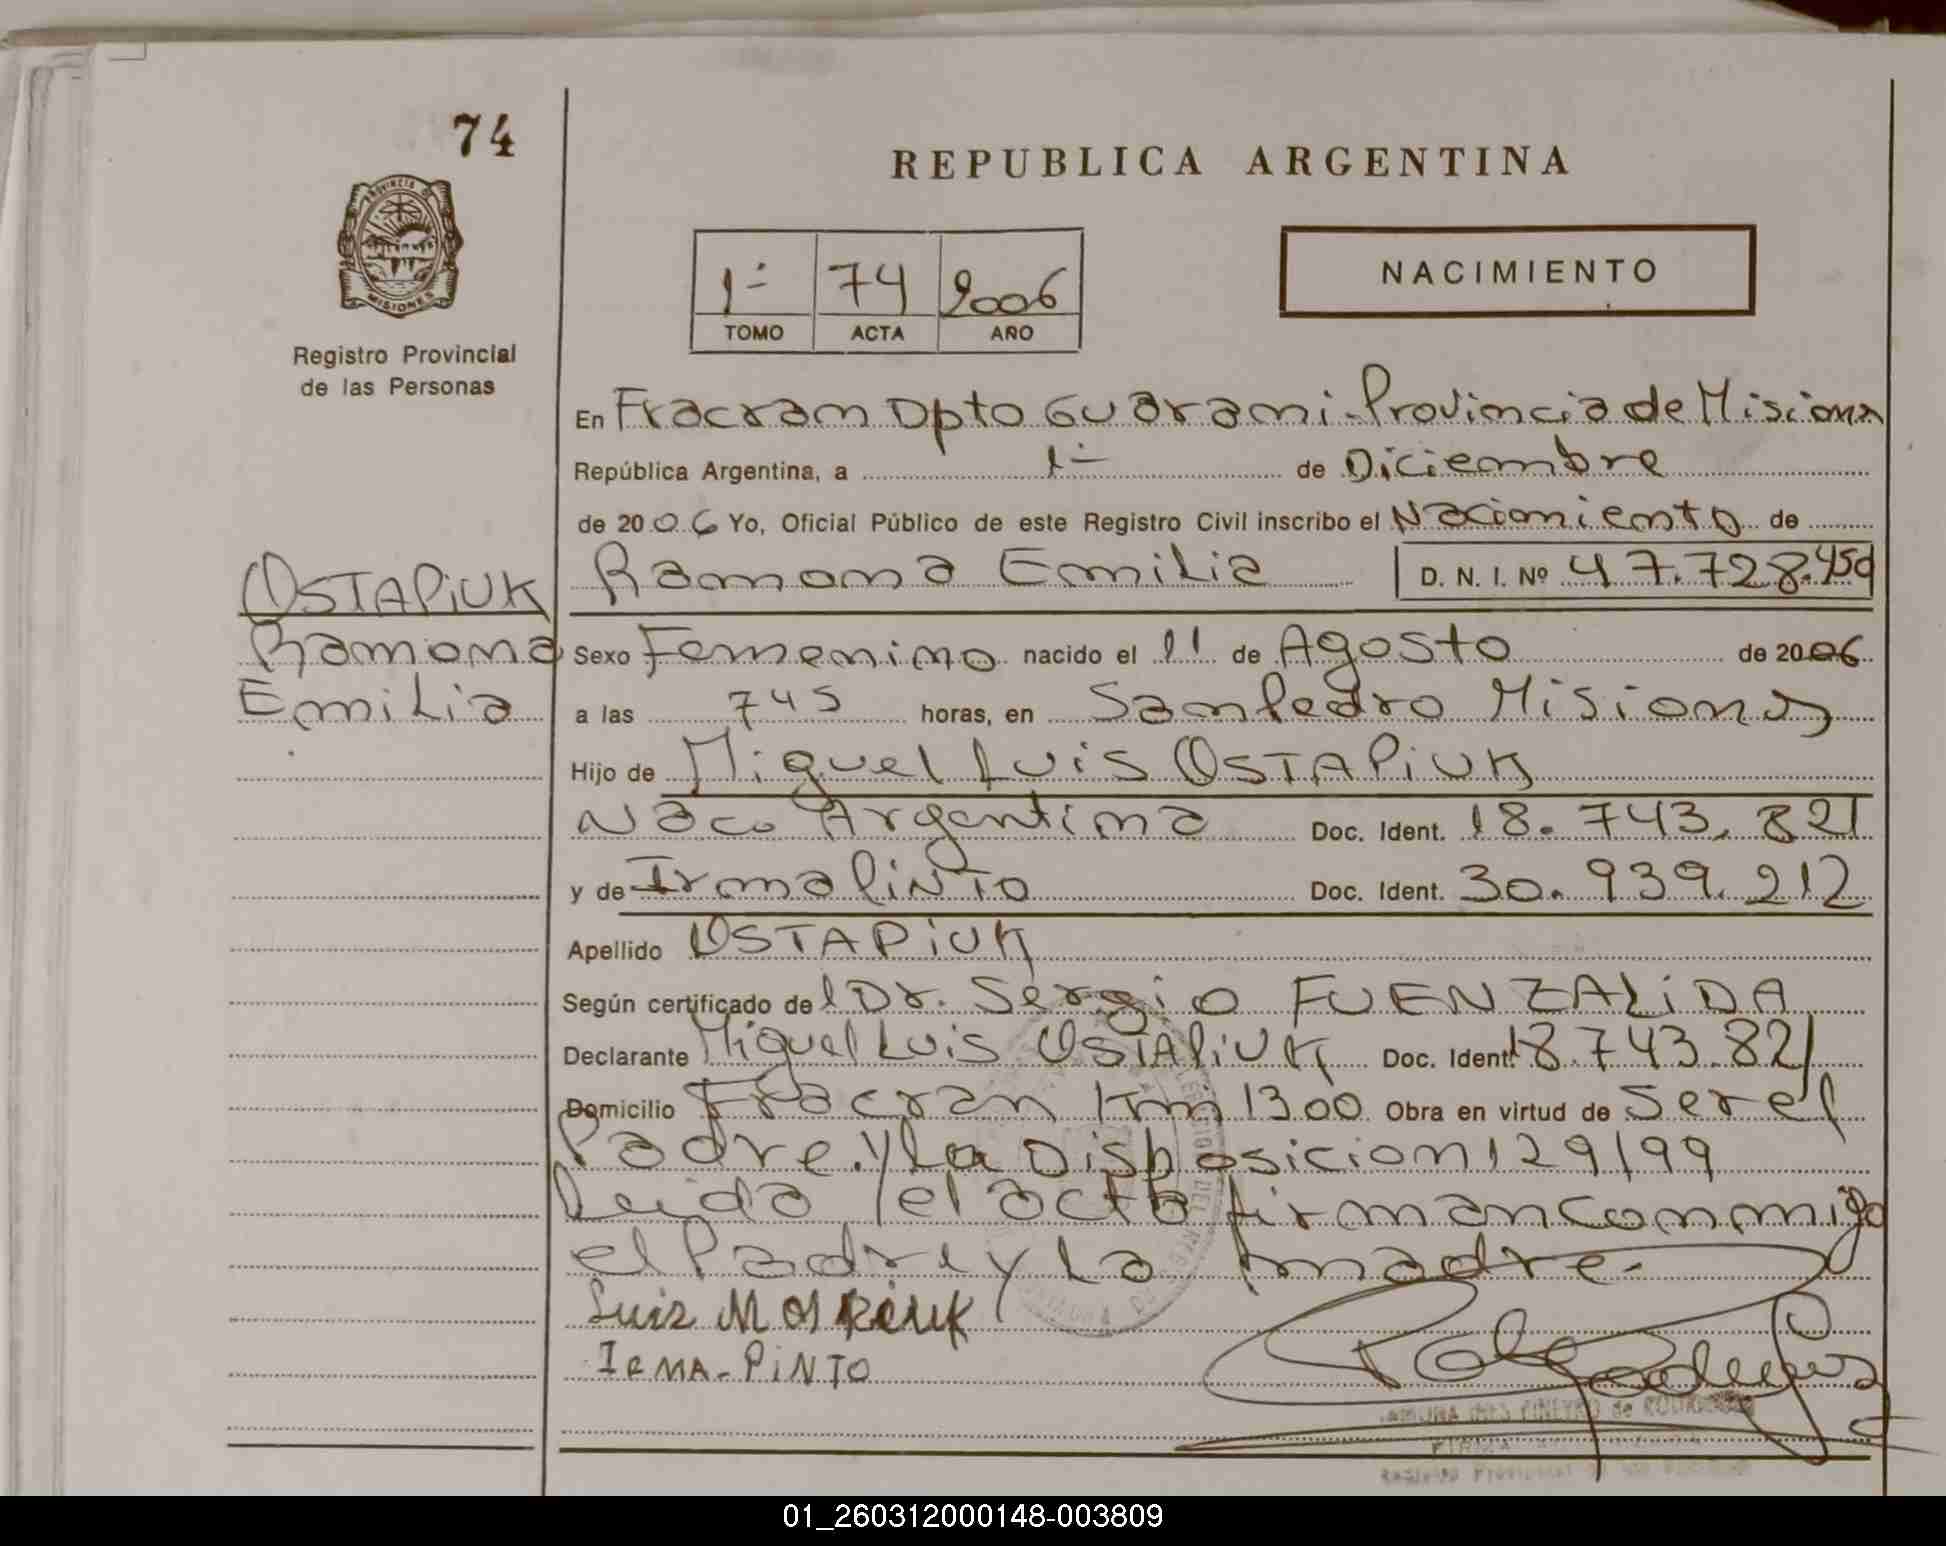 74
REPUBLICA ARGENTINA
PROVINCIA DE
MISIONES
Registro Provincial
de las Personas
1- 74 2006
TOMO ACTA AÑO
NACIMIENTO
En Fracram Dpto Guarami-Provincia de Misiones
República Argentina, a 1- de Diciembre
de 2006 Yo, Oficial Público de este Registro Civil inscribo el Nacimiento de
Ramona Emilia D. N. I. Nº 47.728.450
OSTAPiUK
Ramona
Emilia
Sexo Femenino nacido el 11 de Agosto de 2006
a las 745 horas, en San Pedro Misiones
Hijo de Miguel Luis OSTAPiUK
Naco Argentina Doc. Ident. 18.743.821
y de Irma PiNTO Doc. Ident. 30.939.212
Apellido OSTAPiUK
Según certificado del Dr. Sergio FUENZALiDA
Declarante Miguel Luis OSTAPiUK Doc. Ident. 18.743.821
Domicilio Fracran Km 1300 Obra en virtud de Ser el
Padre y La Disposicion 129/99
Leida el acta firman conmigo
el Padre y La madre.
Luiz
IRMA-PiNTO
PINEYRO de RODRIGUEZ
Registro Provincial de las Personas
01_260312000148-003809